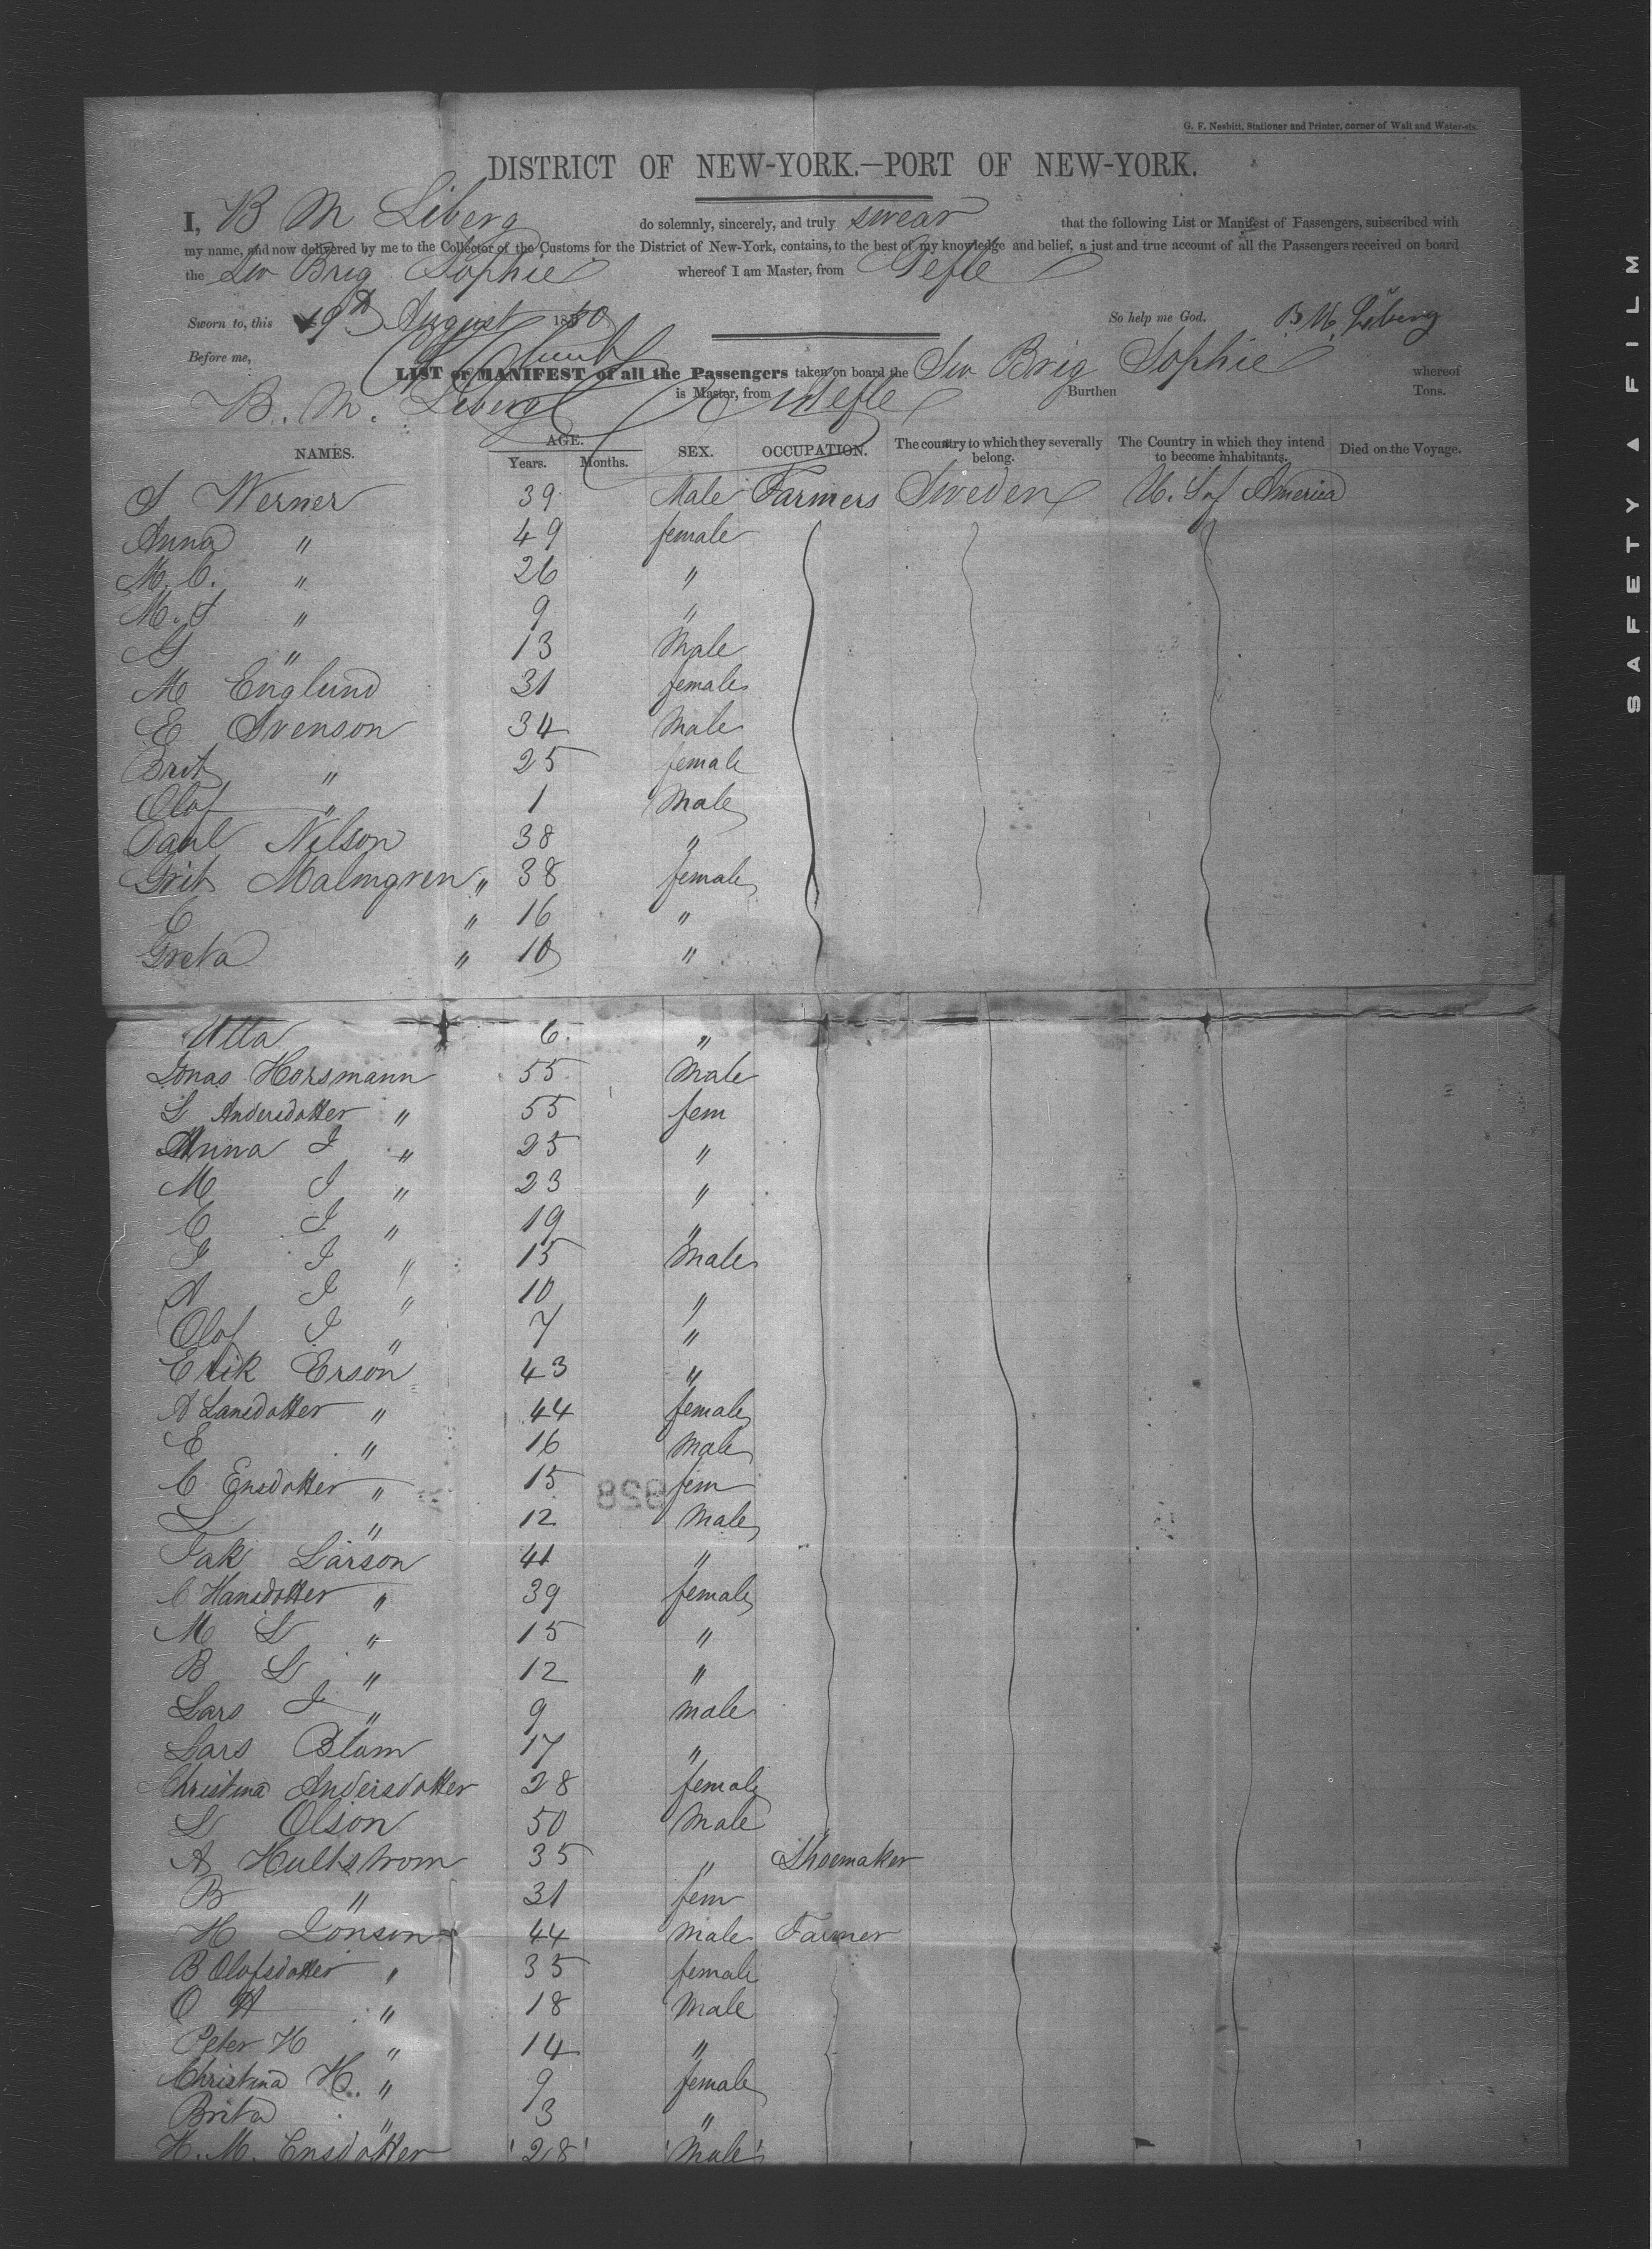 G. F. Nesbitt, Stationer and Printer, corner of Wall and Water-sts.
DISTRICT OF NEW-YORK.—PORT OF NEW-YORK.
I, B M Liberg do solemnly, sincerely, and truly swear that the following List or Manifest of Passengers, subscribed with
my name, and now delivered by me to the Collector of the Customs for the District of New-York, contains, to the best of my knowledge and belief, a just and true account of all the Passengers received on board
the Sw Brig Sophie whereof I am Master, from Gefle
Sworn to, this 19th August 1850 So help me God. B. M. Liberg
Before me,
LIST or MANIFEST of all the Passengers taken on board the Sw Brig Sophie whereof
B. M. Liberg is Master, from Gefle Burthen Tons.
NAMES. AGE. Years. Months. SEX. OCCUPATION. The country to which they severally belong. The Country in which they intend to become inhabitants. Died on the Voyage.
S Werner 39 Male Farmers Sweden U. S of America
Anna " 49 female
M. C. " 26 "
M. S " 9 "
G " 13 Male
M Englund 31 female
E Svenson 34 Male
Brit " 25 female
Olof " 1 Male
Paul Nilson 38 "
Brit Malmgren " 38 female
C " 16 "
Greta " 10 "
Ulla 6 "
Jonas Horsmann 55 Male
L Andersdotter " 55 fem
Anna J " 25 "
M J " 23 "
C J " 19 "
J J " 15 Male
A J " 10 "
Olof J " 7 "
Erik Erson 43 "
A Larsdotter " 44 female
E " 16 Male
C Ersdotter " 15 fem
L " 12 Male
Larson 41 "
C Hansdotter " 39 female
M L " 15 "
B L " 12 "
Lars J " 9 male
Lars Blom 17 "
Christina Andersdotter 28 female
L Olson 50 Male
A Hultstrom 35 " Shoemaker
B " 31 fem
H Jonson 44 Male Farmer
B Olofsdotter " 35 female
O H " 18 Male
Peter H " 14 "
Christina H. " 9 female
Brita " 3 "
H. M. Ersdotter 28 Male
828
SAFETY A FILM